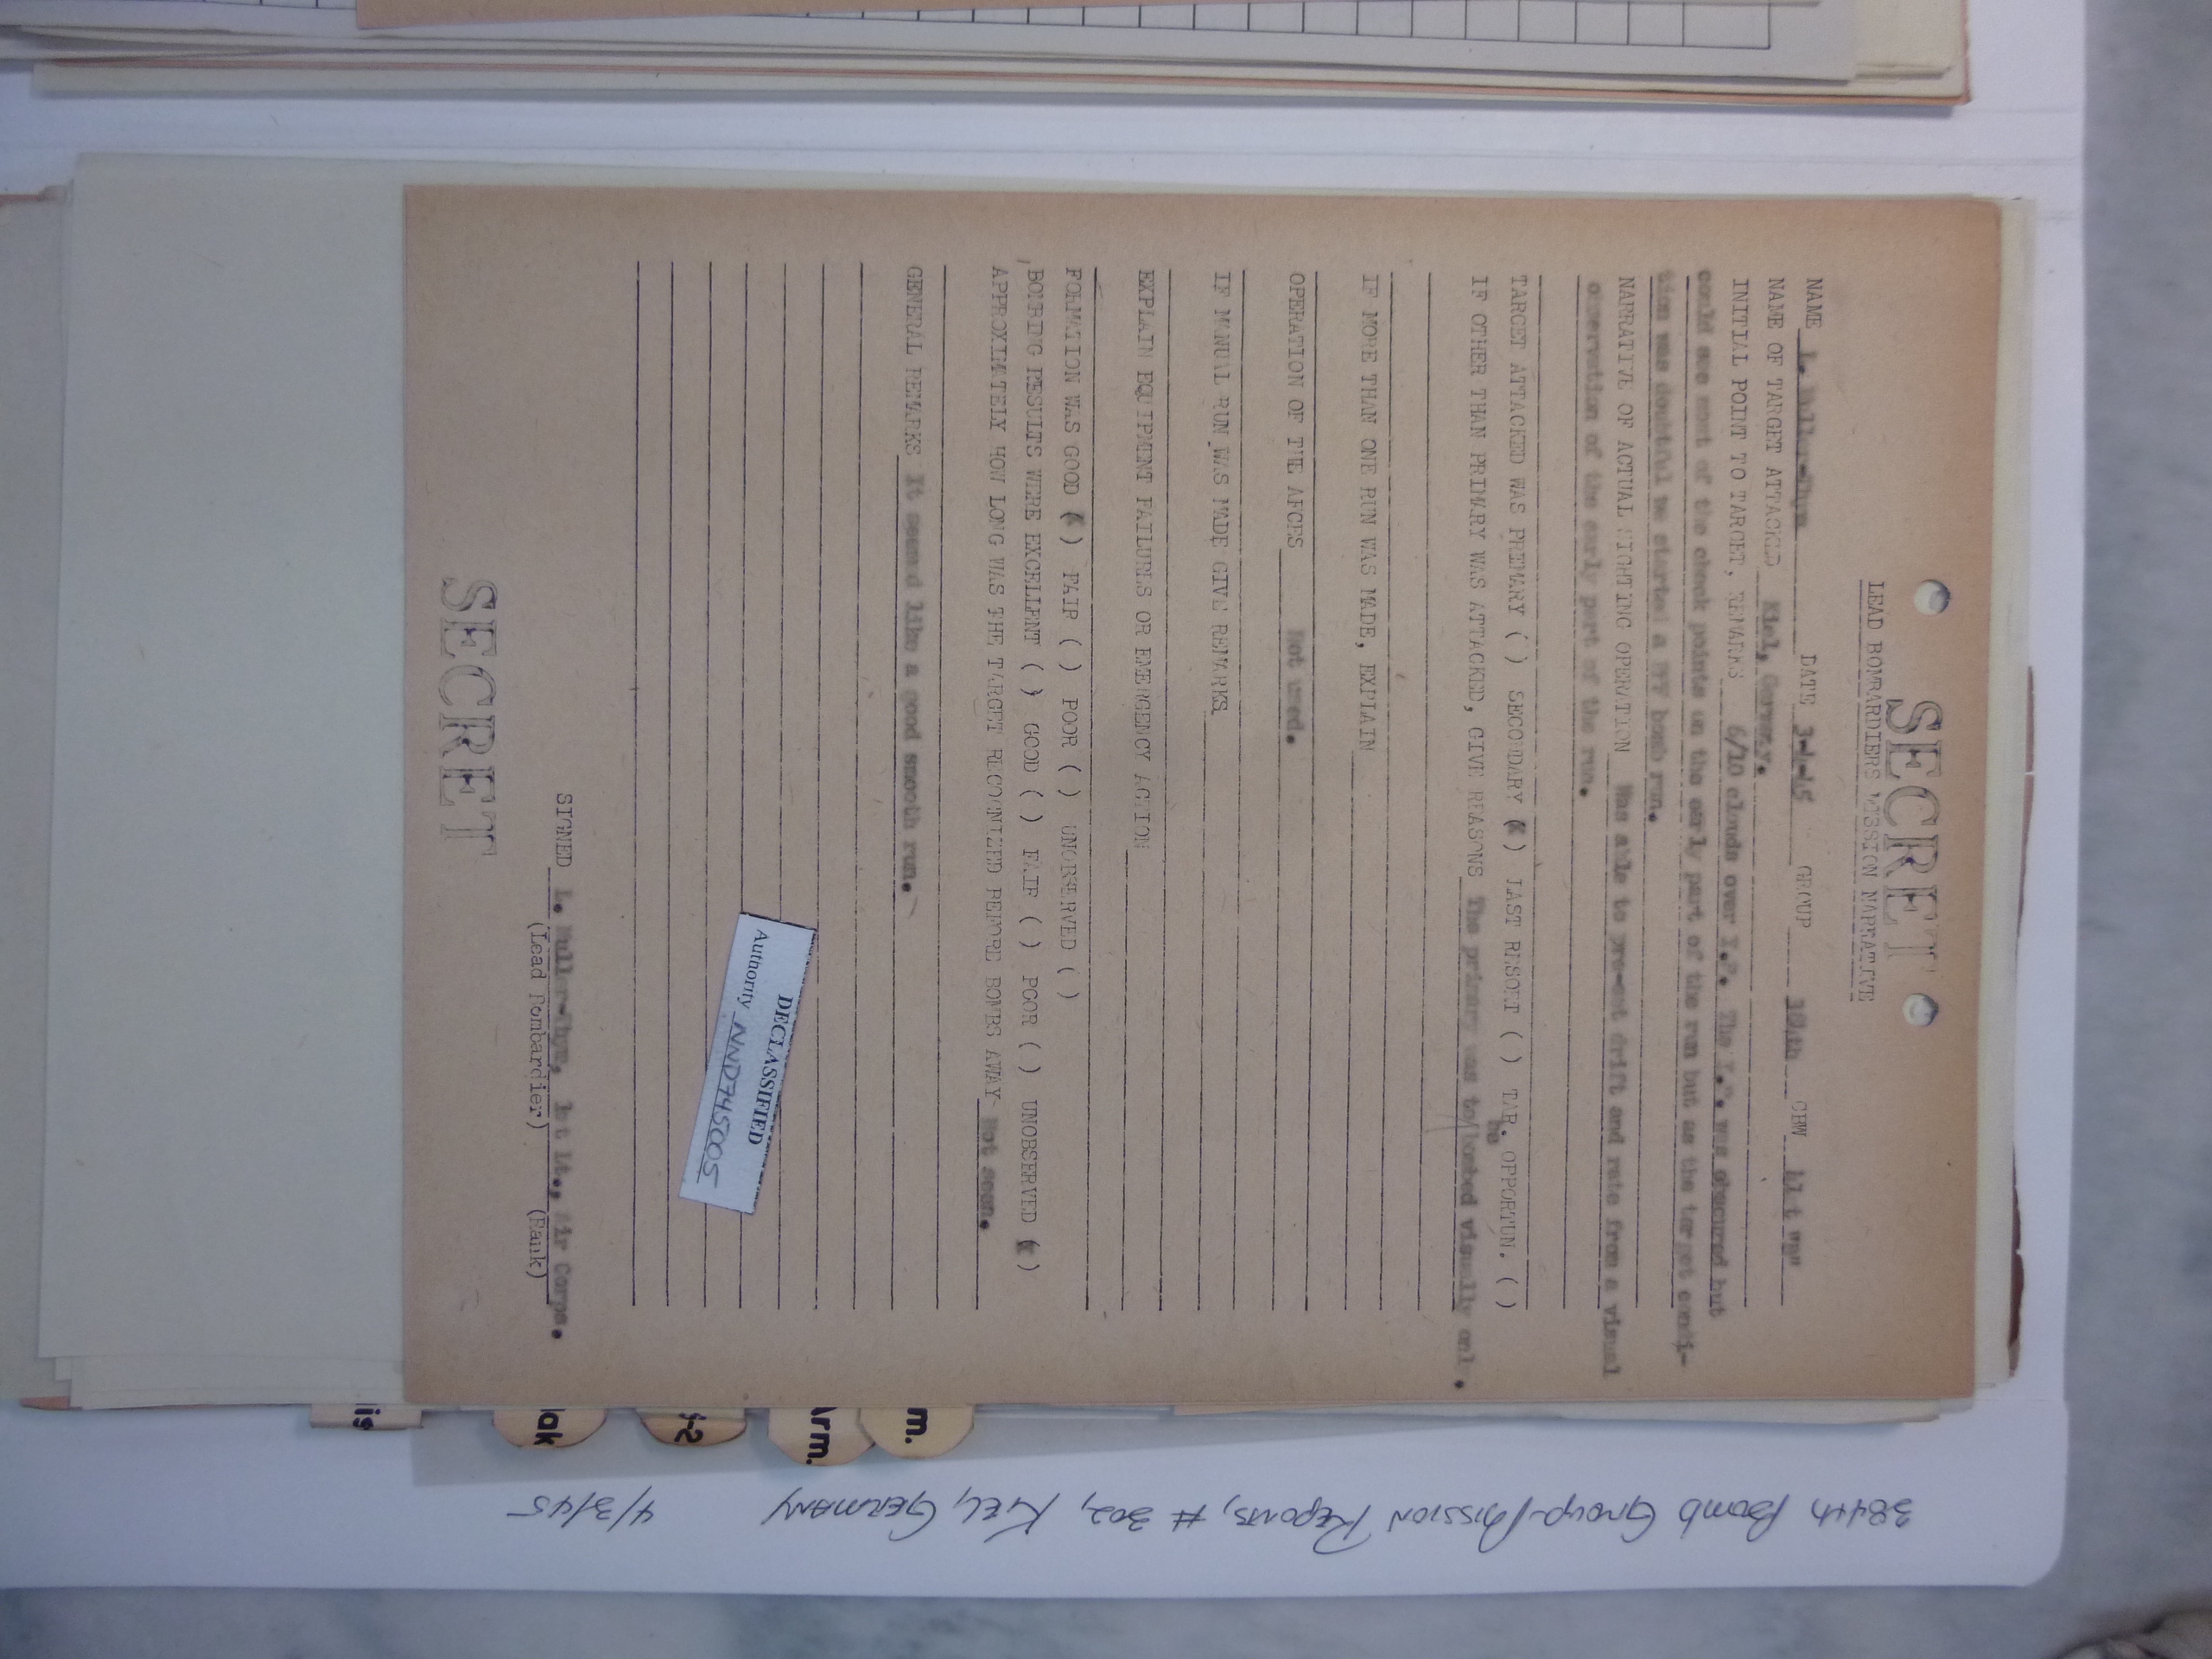 SECRET
LEAD BOMBARDIERS MISSION NARRATIVE
NAME L. DATE 3-4-45 GROUP 384th CBW 41st "B"
NAME OF TARGET ATTACKED Kiel, Germany.
INITIAL POINT TO TARGET, REMARKS 6/10 clouds over I.P. The I.P. was obscured but
could see most of the check points on the early part of the run but as the target condi-
tion was doubtful we started a PFF bomb run.
NARRATIVE OF ACTUAL SIGHTING OPERATION Was able to pre-set drift and rate from a visual
observation of the early part of the run.
TARGET ATTACKED WAS PRIMARY ( ) SECONDARY (X) LAST RESORT ( ) TAR. OPPORTUN. ( )
IF OTHER THAN PRIMARY WAS ATTACKED, GIVE REASONS The primary was to be bombed visually only.
IF MORE THAN ONE RUN WAS MADE, EXPLAIN
OPERATION OF THE AFCES Not used.
IF MANUAL RUN WAS MADE GIVE REMARKS
EXPLAIN EQUIPMENT FAILURES OR EMERGENCY ACTION
FORMATION WAS GOOD (X) FAIR ( ) POOR ( ) UNOBSERVED ( )
BOMBING RESULTS WERE EXCELLENT ( ) GOOD ( ) FAIR ( ) POOR ( ) UNOBSERVED (X)
APPROXIMATELY HOW LONG WAS THE TARGET RECOGNIZED BEFORE BOMBS AWAY Not seen.
GENERAL REMARKS It seemed like a good smooth run.
DECLASSIFIED
Authority NND745005
SIGNED L. 1st Lt., Air Corps.
(Lead Bombardier) (Rank)
SECRET
m.
Arm.
S-2
lak
ig
384th Bomb Group-Mission Reports, # 302, Kiel, Germany 4/3/45